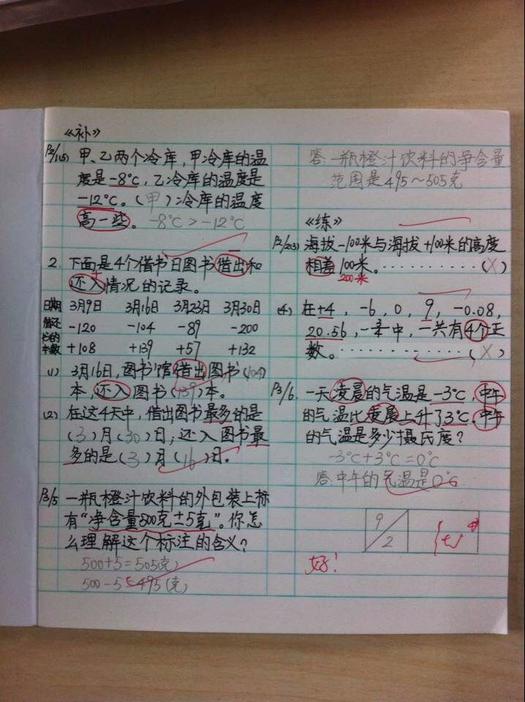 《补》
P2/1(5) 甲、乙两个冷库，甲冷库的温
度是-8℃，乙冷库的温度是
-12℃。(甲)冷库的温度
高一些。 -8℃>-12℃
2. 下面是4个借书日图书借出和
还入情况的记录。
日期 3月9日 3月16日 3月23日 3月30日
-120 -104 -89 -200
+108 +139 +57 +132
(1) 3月16日，图书馆借出图书(104)
本，还入图书(139)本。
(2) 在这4天中，借出图书最多的是
(3)月(30)日；还入图书最
多的是(3)月(16)日。
P3/5 一瓶橙汁饮料的外包装上标
有“净含量500克±5克”。你怎
么理解这个标注的含义？
500+5=505(克)
500-5=495(克)
答:一瓶橙汁饮料的净含量
范围是495~505克
《练》
P2/2(3) 海拔-100米与海拔+100米的高度
相差100米。………(×)
200米
(4) 在+4，-6，0，9，-0.08，
20.56，一中，一共有4个正
数。………(×)
P3/6. 一天凌晨的气温是-3℃，中午
的气温比凌晨上升了3℃。中午
的气温是多少摄氏度？
-3℃+3℃=0℃
答:中午的气温是0℃
9
2
好!